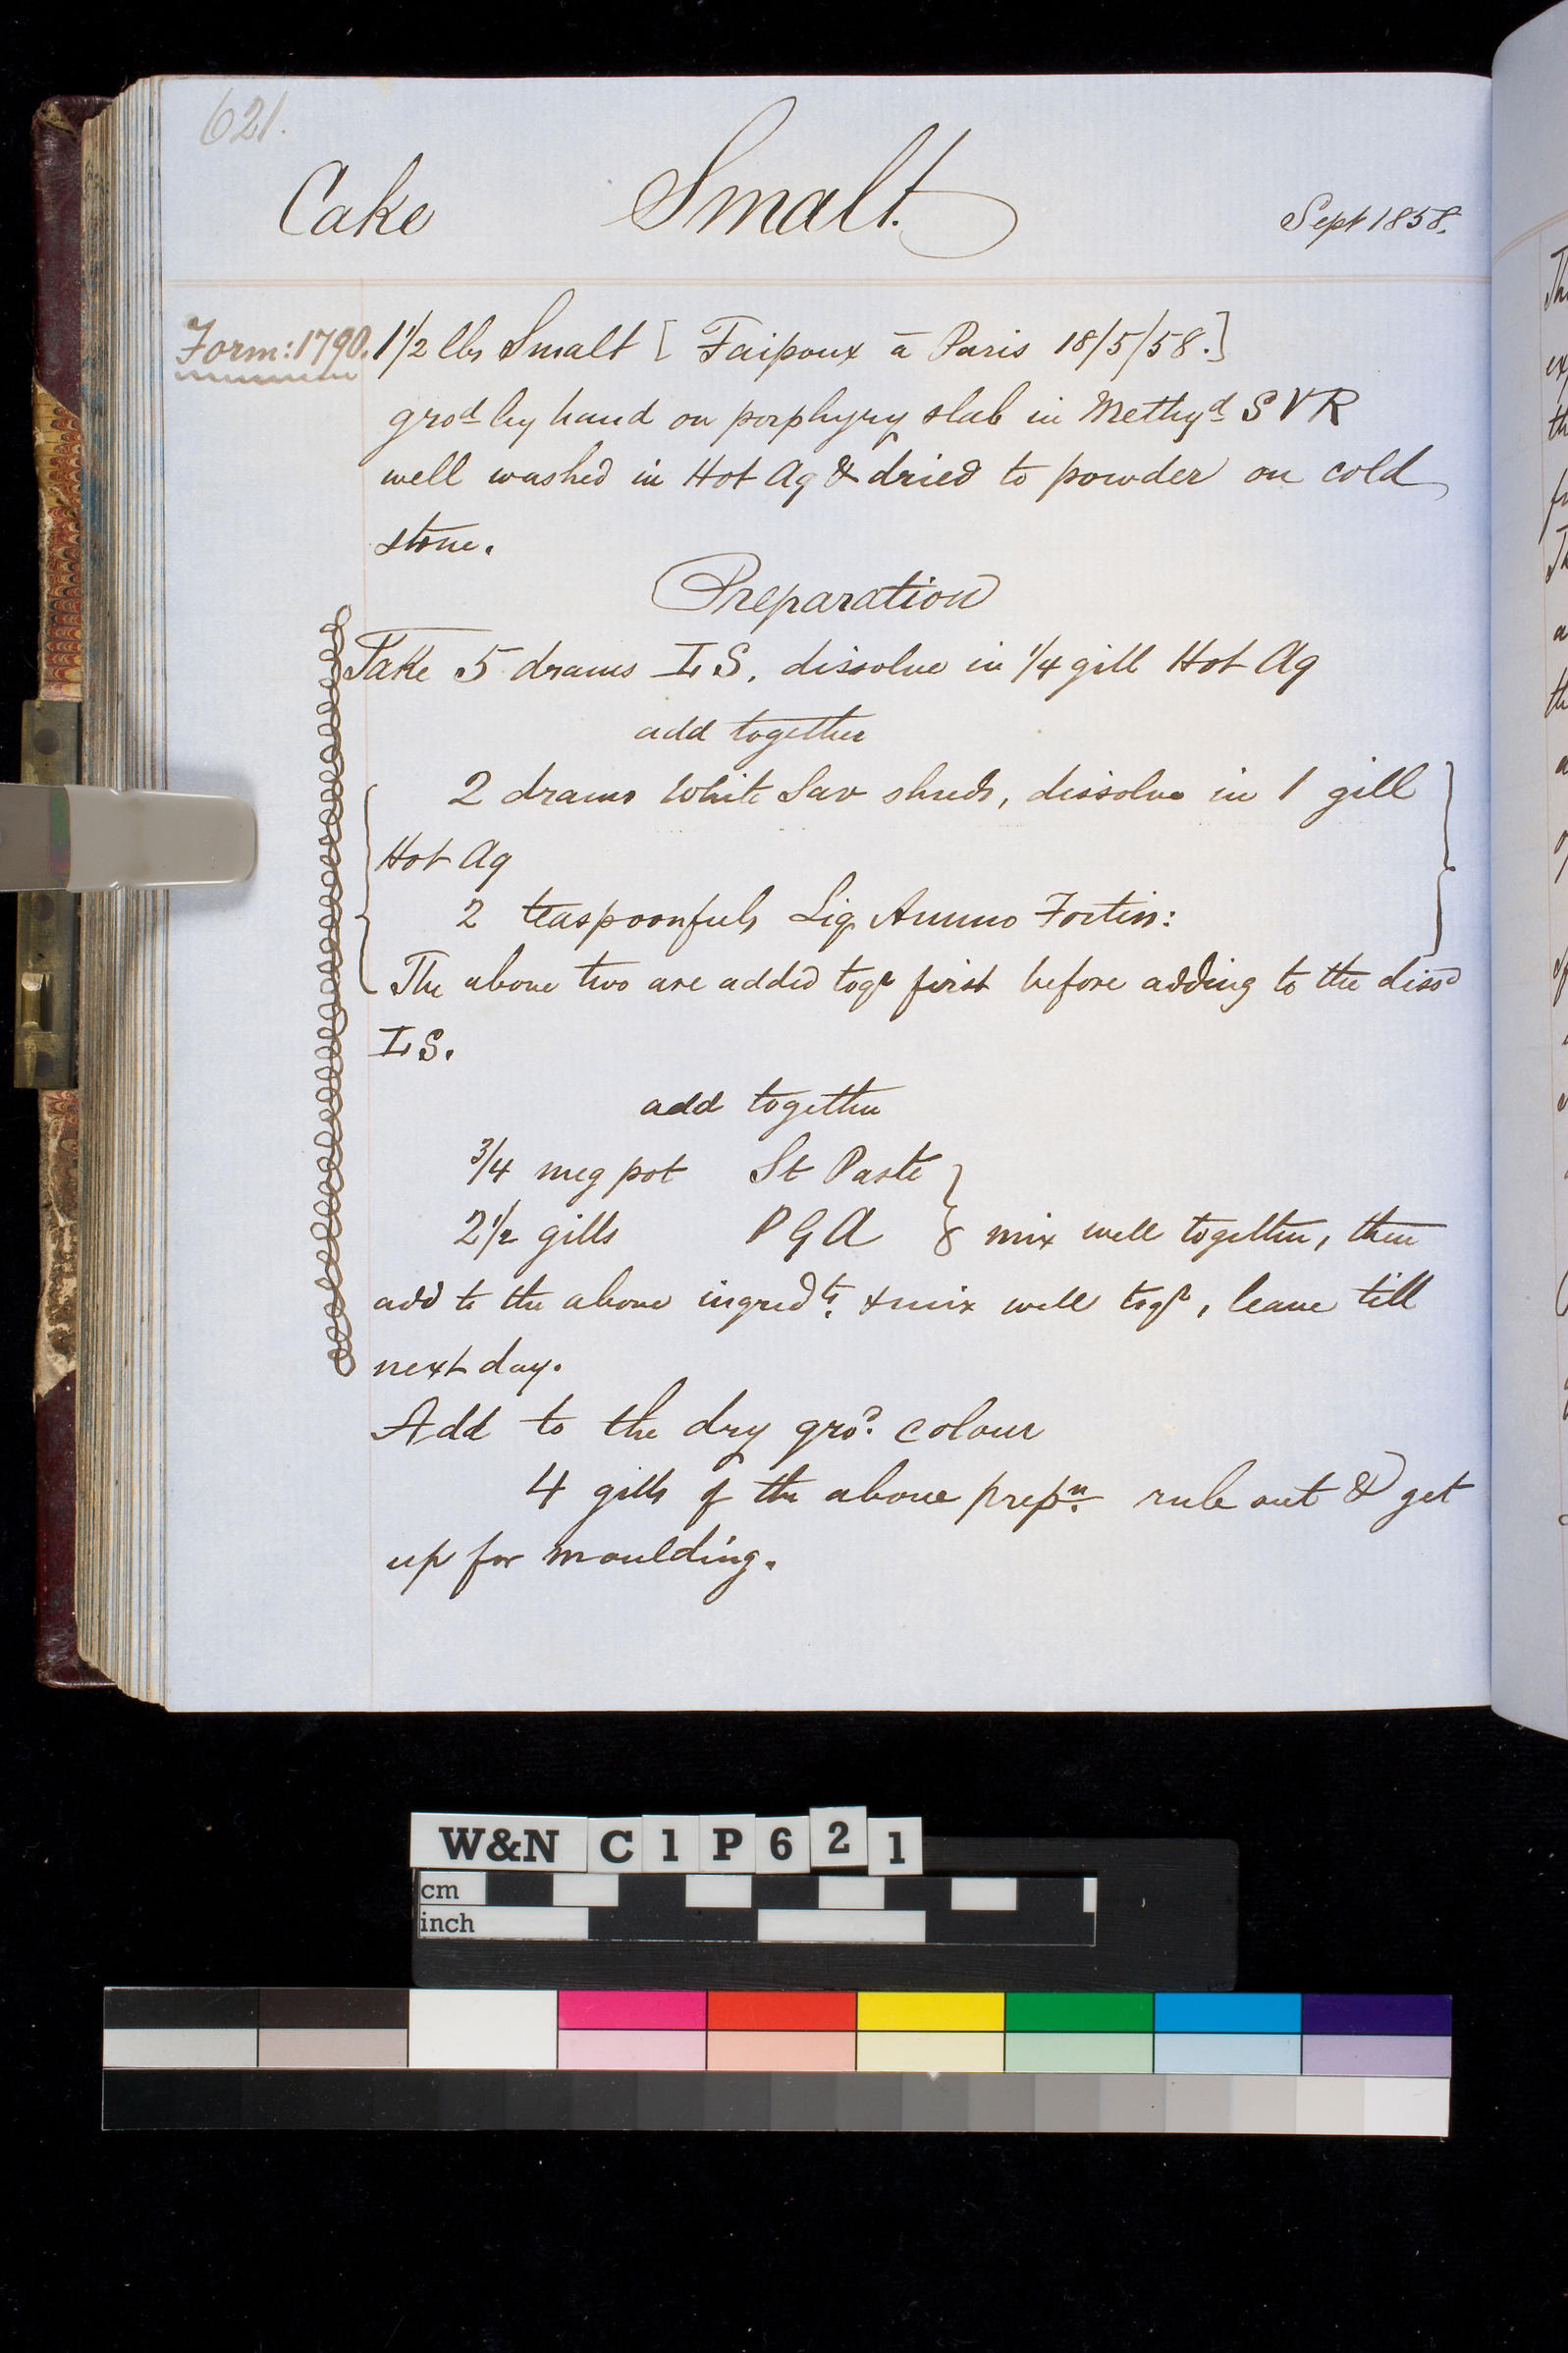 621.
Cake Smalt. Sept 1858.
Form: 1790. 1 1/2 lbs Smalt [ Faipoux à Paris 18/5/58.]
gro^d by hand on porphyry slab in Methy^d S V R
well washed in Hot Aq & dried to powder on cold
stone.
Preparation
Take 5 drams I S. dissolve in 1/4 gill Hot Aq
add together
2 drams White Sav shreds, dissolve in 1 gill
Hot Aq
2 teaspoonfuls Liq Ammo Fortis:
The above two are added tog^r first before adding to the diss^d
I S.
add together
3/4 meg pot St Paste
2 1/2 gills P G A & mix well together, then
add to the above ingred^ts. & mix well tog^r, leave till
next day.
Add to the dry gro^d. colour
4 gills of the above prep^n. rub out & get
up for moulding.
W&N C1P621
cm
inch